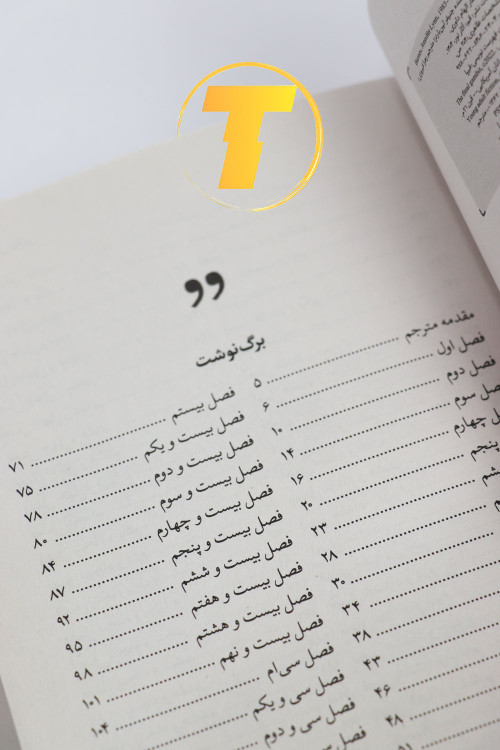 T
”
برگ‌نوشت
مقدمه مترجم ........ ۵
فصل اول ........ ۶
فصل دوم ........ ۱۰
سوم ........ ۱۴
چهارم ........ ۱۶
پنجم ........ ۲۰
ششم ........ ۲۳
۲۸
۳۰
۳۴
۳۸
۴۳
۴۶
۴۸
فصل بیستم ........ ۷۱
فصل بیست و یکم ........ ۷۵
فصل بیست و دوم ........ ۷۸
فصل بیست و سوم ........ ۸۰
فصل بیست و چهارم ........ ۸۴
فصل بیست و پنجم ........ ۸۷
فصل بیست و ششم ........ ۹۲
فصل بیست و هفتم ........ ۹۵
فصل بیست و هشتم ........ ۹۸
فصل بیست و نهم ........ ۱۰۱
فصل سی‌ام ........ ۱۰۴
فصل سی و یکم
فصل سی و دوم
فصل سی